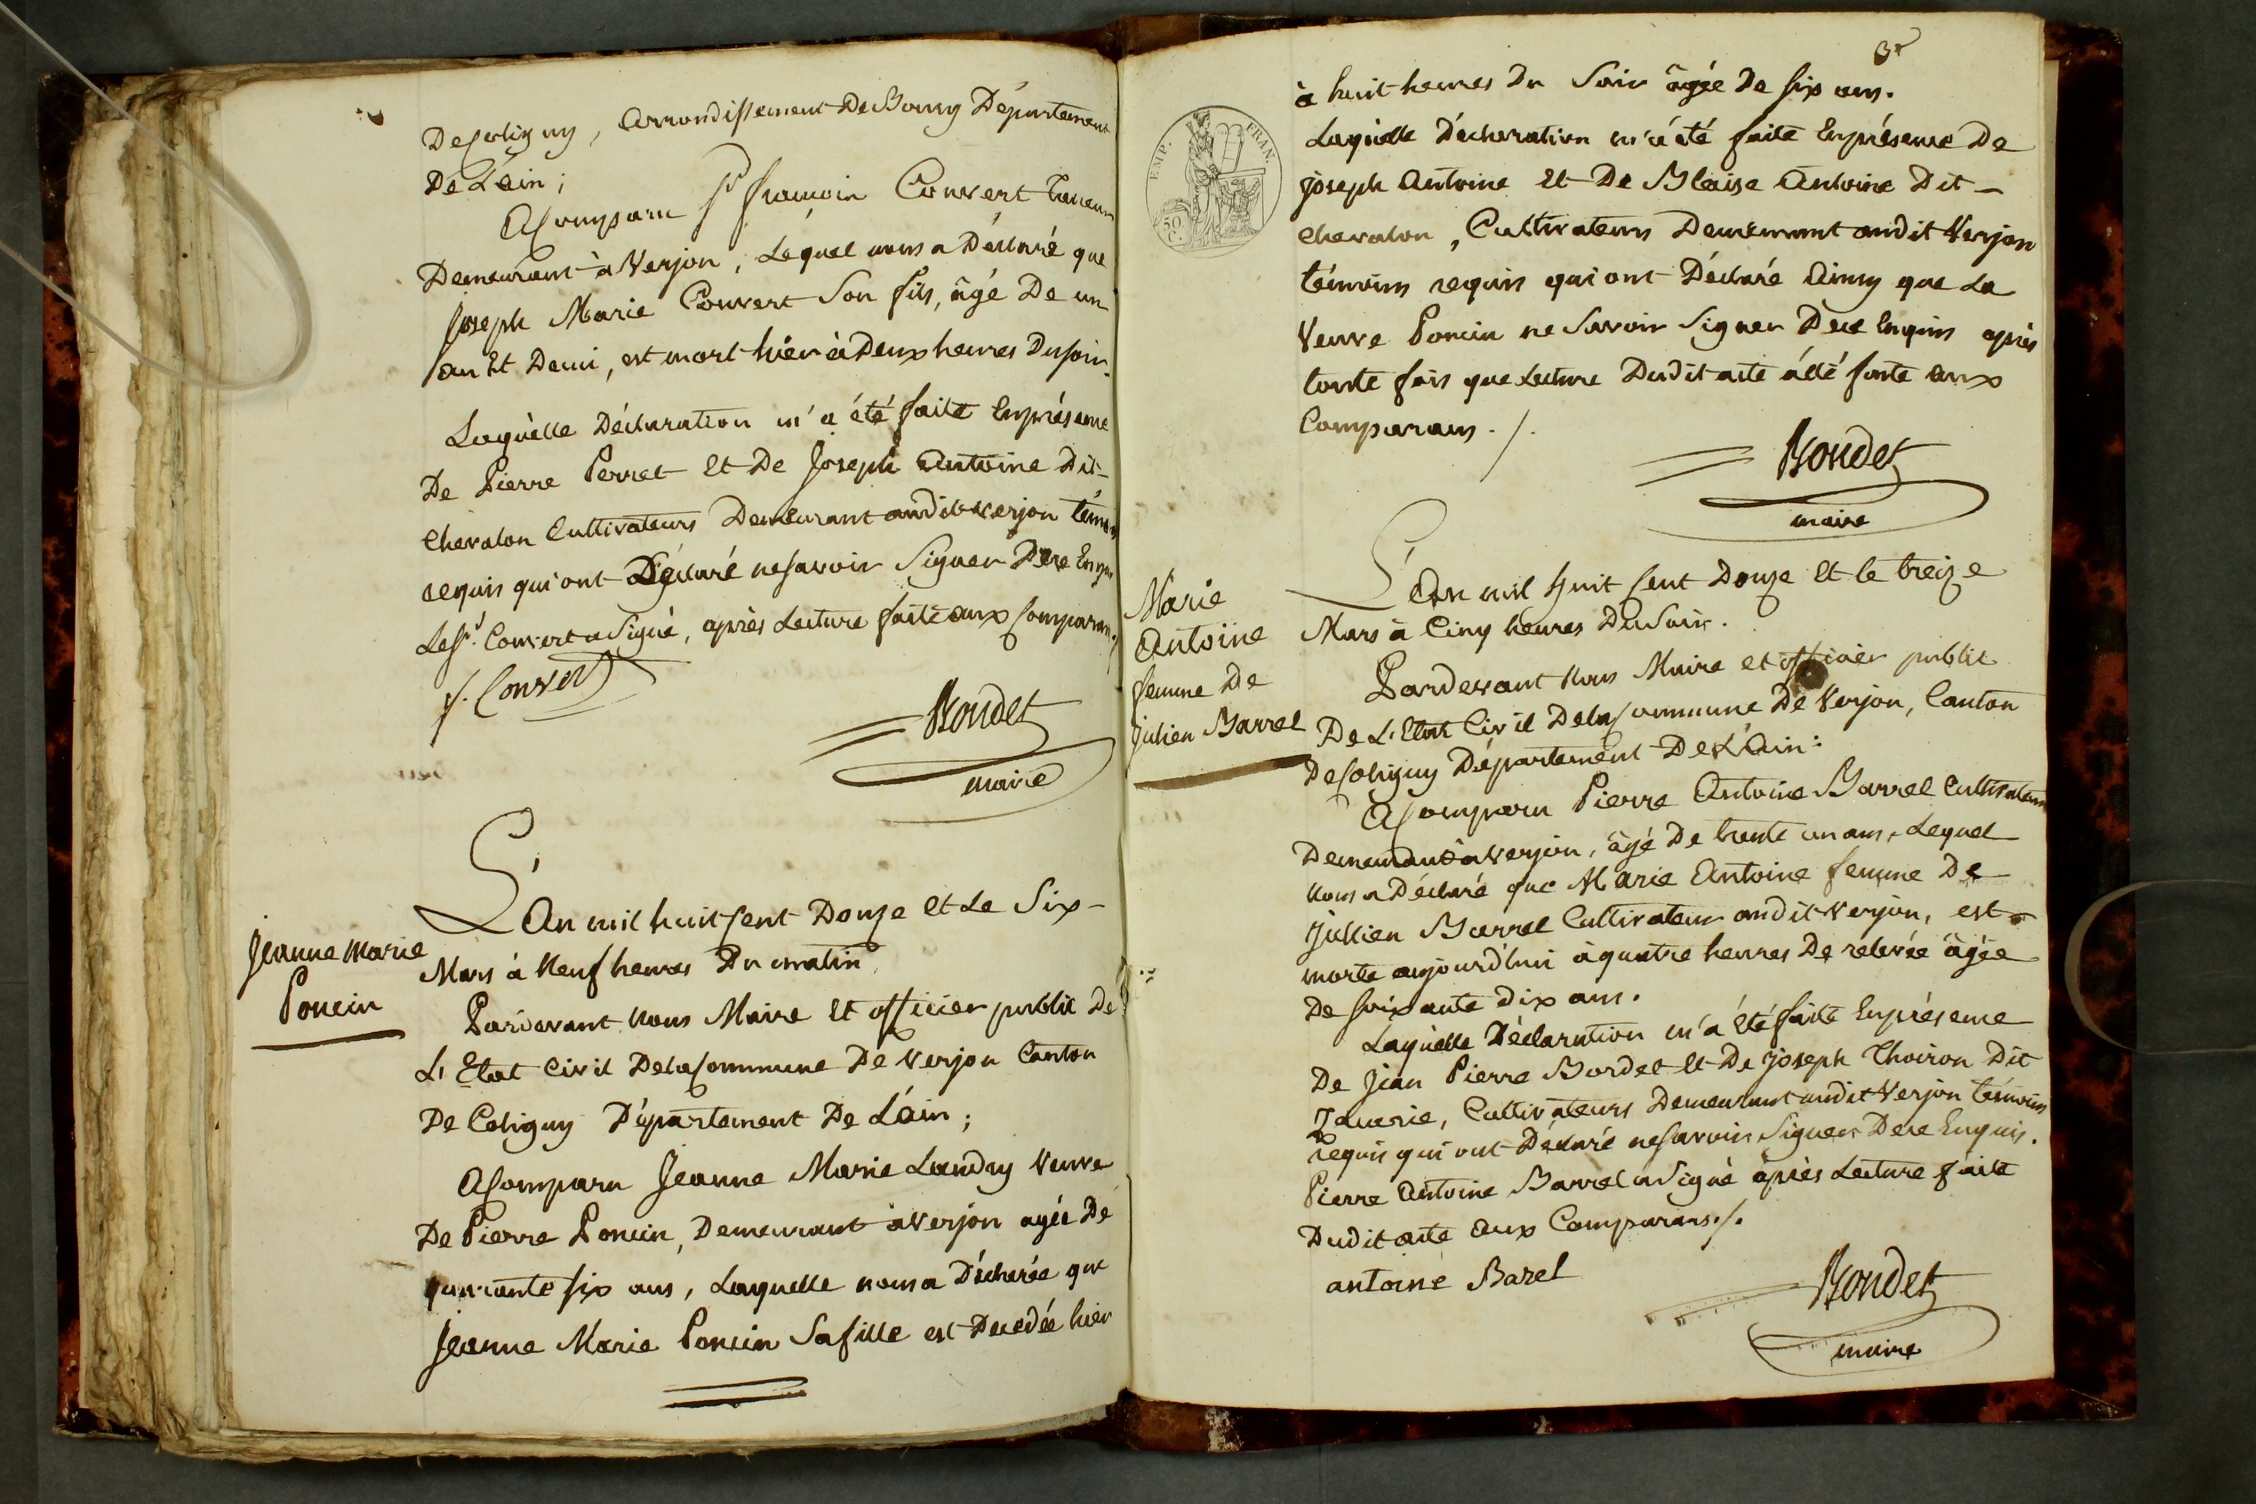 De Coligny, arrondissement De Bourg Département
De L'ain;
A Comparu Sr françois Convert taneur
Demeurant à Verjon, Lequel nous a Déclaré que
Joseph Marie Convert Son fils, âgé De un
an Et Demi, est mort hier à Deux heures Du soir.
Laquelle Déclaration m'a été faite En présence
De Pierre Perret Et De Joseph Antoine Dit-
Chevalon Cultivateurs Demeurant audit Verjon témoins
requis qui ont Déclaré ne savoir Signer De ce Enquis
Le Sr. Convert a Signé, après Lecture faite aux Comparans./.
f. Convert
Bondet
maire
Jeanne Marie
Poncin
L'An mil huit Cent Douze Et Le Six-
Mars à Neuf heures Du matin
Pardevant Nous Maire Et officier public De
L'Etat Civil De la Commune De Verjon Canton
De Coligny Département De L'ain;
A Comparu Jeanne Marie Landry Veuve
De Pierre Poncin, Demeurant à Verjon agée De
quarante six ans, Laquelle nous a Déclarée que
Jeanne Marie Poncin Sa fille est Décedée hier
3e
EMP. FRAN.
50 C.
à huit heures Du Soir âgée De six ans.
Laquelle Déclaration m'a été faite En présence De
Joseph Antoine Et De Blaise Antoine Dit-
Chevalon, Cultivateurs Demeurant audit Verjon
témoins requis qui ont Déclaré Ainsy que La
Veuve Poncin ne Savoir Signer De ce Enquis après
toute fois que Lecture Dudit acte a été faite aux
Comparans ./.
Bondet
maire
Marie
Antoine
femme De
Julien Barrel
L'An mil huit Cent Douze Et le treize
Mars à Cinq heures Du Soir.
Pardevant Nous Maire et officier public
De L'Etat Civil De la Commune De Verjon, Canton
De Coligny Département De L'Ain:
A Comparu Pierre Antoine Barrel Cultivateur
Demeurant à Verjon, âgé De trente un ans, Lequel
Nous a Déclaré que Marie Antoine femme De
Jullien Barrel Cultivateur audit Verjon, est
morte aujourd'hui à quatre heures De relevée âgée
De soixante Dix ans.
Laquelle Déclaration m'a Eté faite En présence
De Jean Pierre Bordet Et De Joseph Thoiron Dit
Cultivateurs Demeurant audit Verjon témoins
requis qui ont Déclaré ne savoir Signer De ce Enquis.
Pierre Antoine Barrel a Signé après Lecture faite
Dudit acte aux Comparans./.
antoine Barel
Bondet
maire